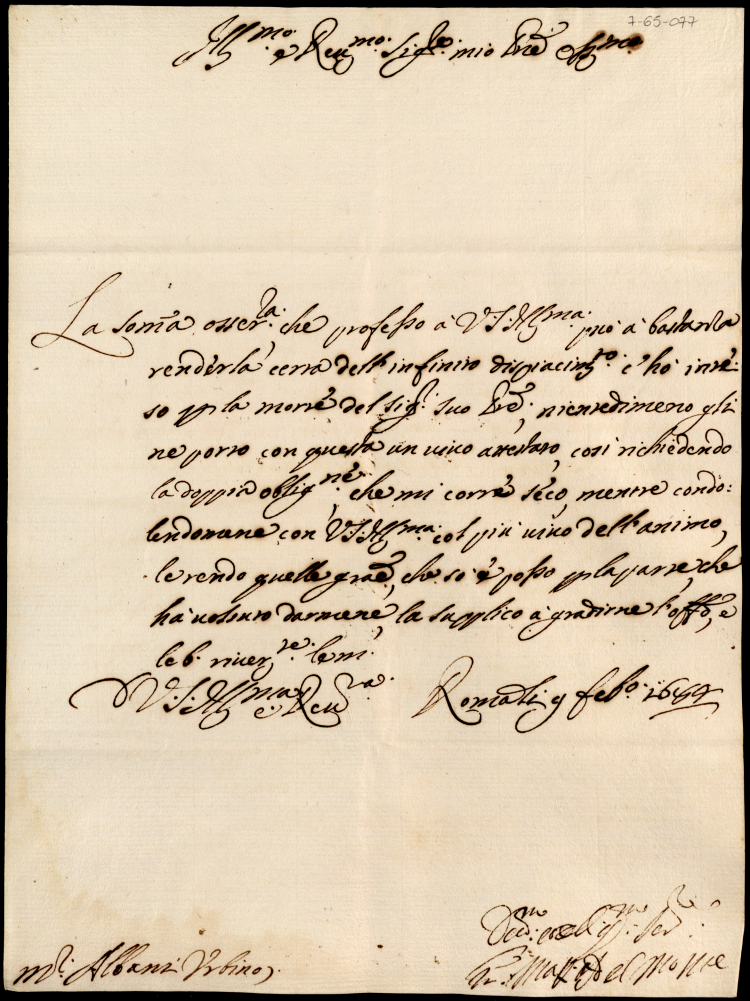 7-65-077
Ill.mo e Reu.mo Sig.re mio Pñe
La som̃a osser.za che professo à V.S.Ill.ma può à bastanza
renderla certa dell'infinito dispiacim.to c'hò inte-
so p la morte del sig.r suo Pre, nientedimeno gli
ne porto con questa un uiuo attestato, così richiedendo
la doppia oblig.ne che mi corre seco, mentre condo-
lendomene con V.S.Ill.ma col più uiuo dell'animo,
le rendo quelle graē, che so e posso p la parte, che
ha uoluto darmene, la supplico à gradirne l'off.o, e
le b. riuer.te le m.
D V.S.Ill.ma e Reu.ma Roma li 9 feb.o
Deu.mo et Obl.mo Ser.re
del Monte
m.r Albani Vrbino